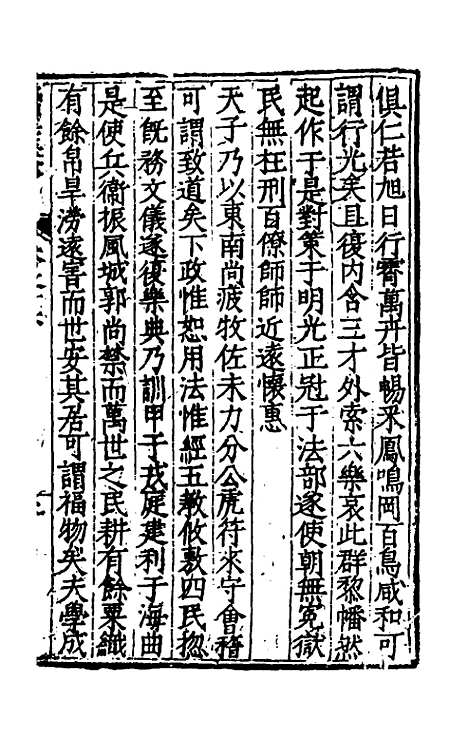 俱仁若旭日行霄萬卉皆暢釆鳳鳴岡百鳥咸和可
謂行光矣且復内含三才外索六樂哀此群黎幡然
起作于是對策于明光正冠于法部遂使朝無冤獄
民無枉刑百僚師師近遠懷惠
天子乃以東南尚疲牧佐未力分公虎符來守會稽
可謂致道矣下政惟恕用法惟經五教攸敷四民揔
至旣務文儀遂復樂典乃訓甲于戎庭建利于海曲
是使兵衞振風城郭尚禁而萬世之民耕有餘粟織
有餘帛旱澇遠害而世安其居可謂福物矣夫學成